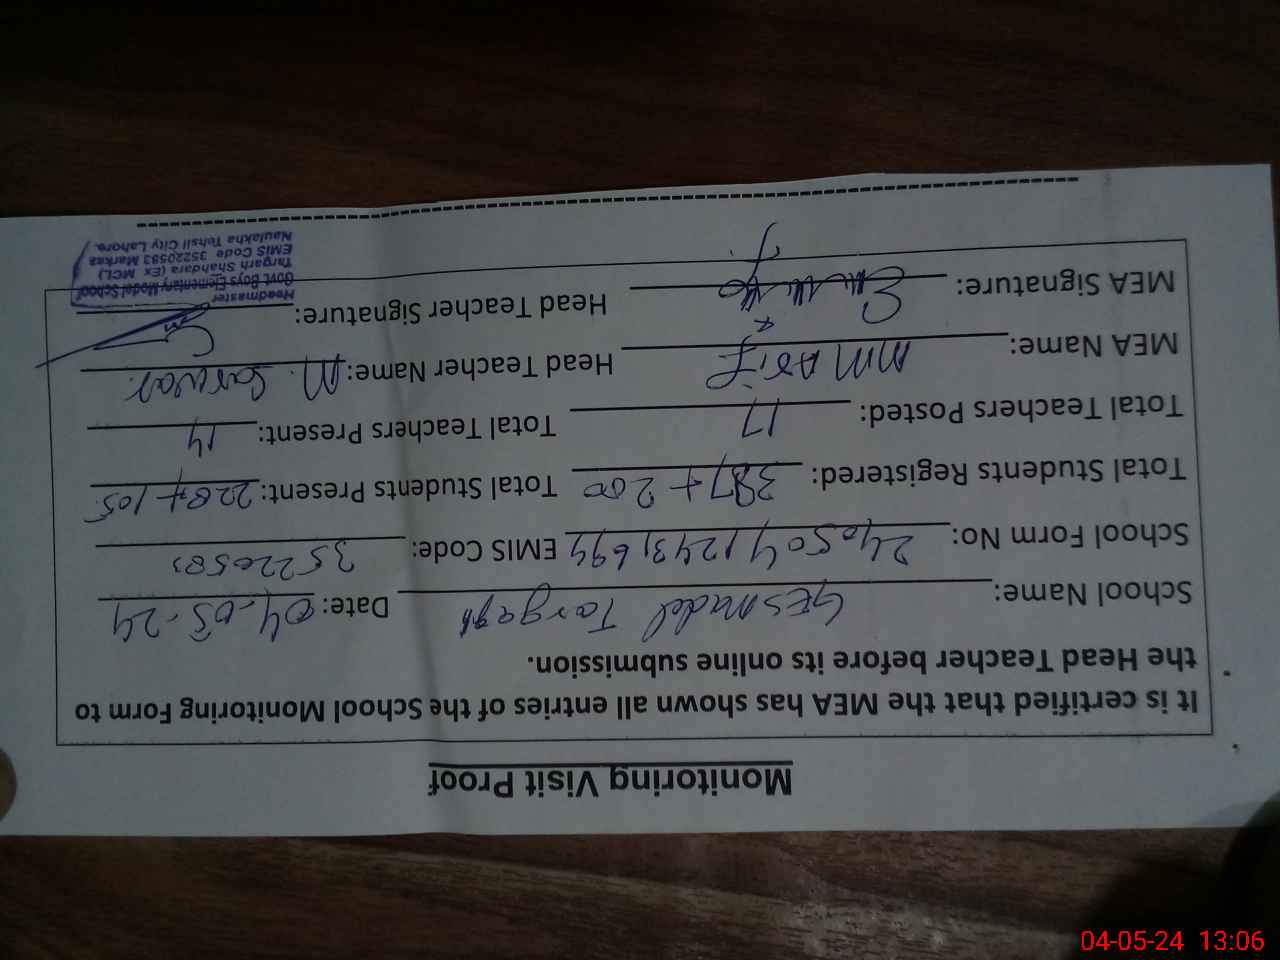 Monitoring Visit Proof
It is certified that the MEA has shown all entries of the School Monitoring Form to
the Head Teacher before its online submission.
School Name: GES Model Targarh Date: 04-05-24
School Form No: EMIS Code: 35220583
Total Students Registered: 387+200 Total Students Present: 228+105
Total Teachers Posted: 17 Total Teachers Present: 14
MEA Name: M M Asif Head Teacher Name: M. Sarwar
MEA Signature: Head Teacher Signature:
Headmaster
Govt. Boys Elementary Model School
Targarh Shahdara (Ex MCL)
EMIS Code 35220583 Markaz
Naulakha Tehsil City Lahore.
04-05-24 13:06